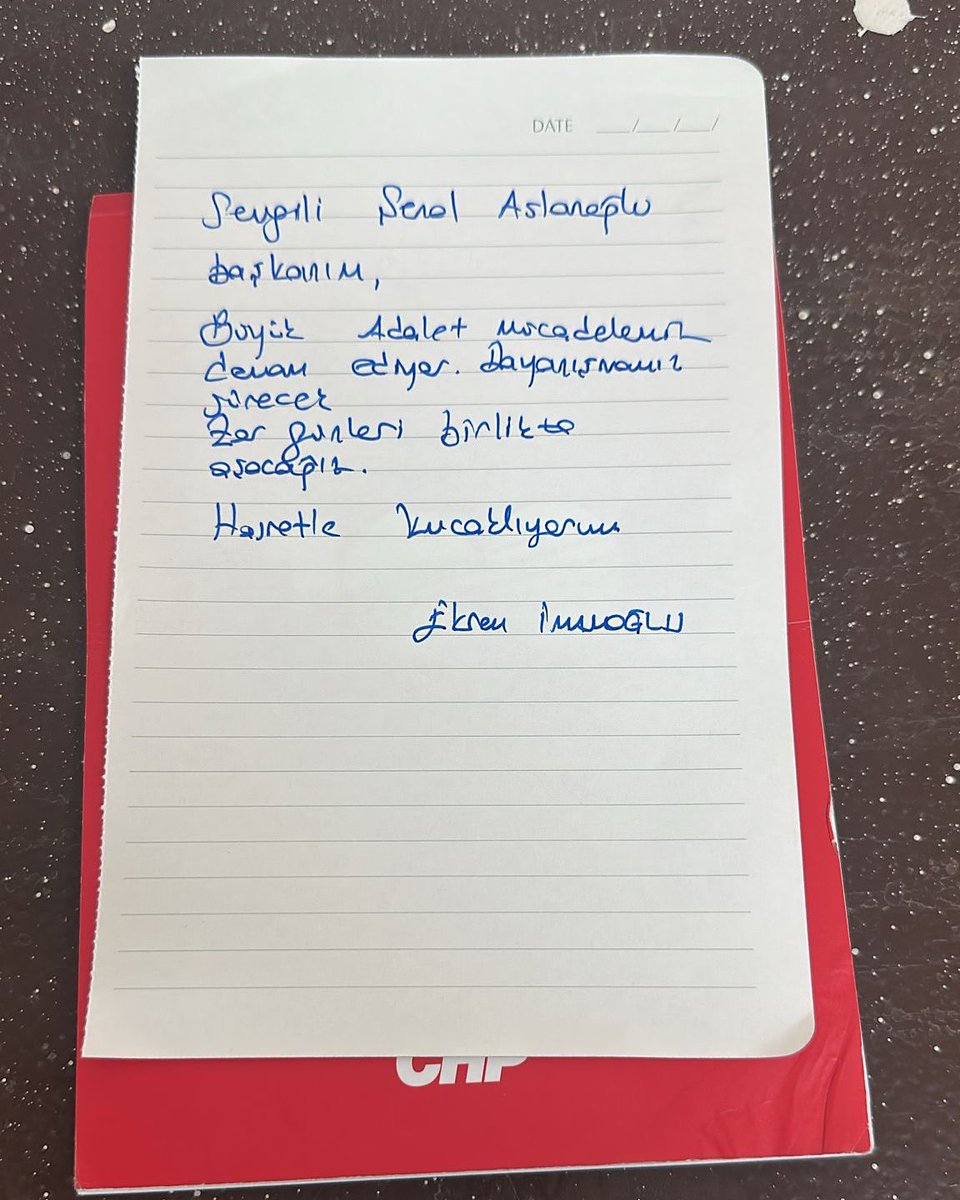 DATE __/__/__/
Sevgili Şenol Aslanoğlu
Başkanım,
Büyük Adalet mücadelemiz
devam ediyor. Dayanışmamız
sürecek
Zor günleri birlikte
aşacağız.
Hasretle kucaklıyorum
Ekrem İMAMOĞLU
CHP